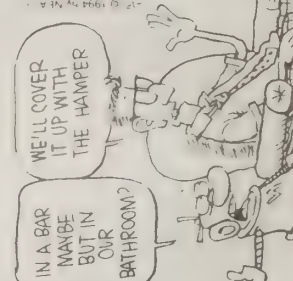 IN A BAR
MAYBE
BUT IN
OUR
BATHROOM?
WE'LL COVER
IT UP WITH
THE HAMPER
© 1994 by NEA